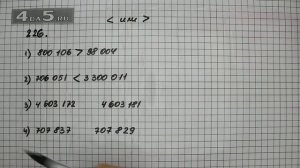 4DA5.RU
< или >
226.
1) 800 106 > 98 004
2) 706 051 < 3 300 011
3) 4 603 172 4 603 181
4) 707 837 707 829